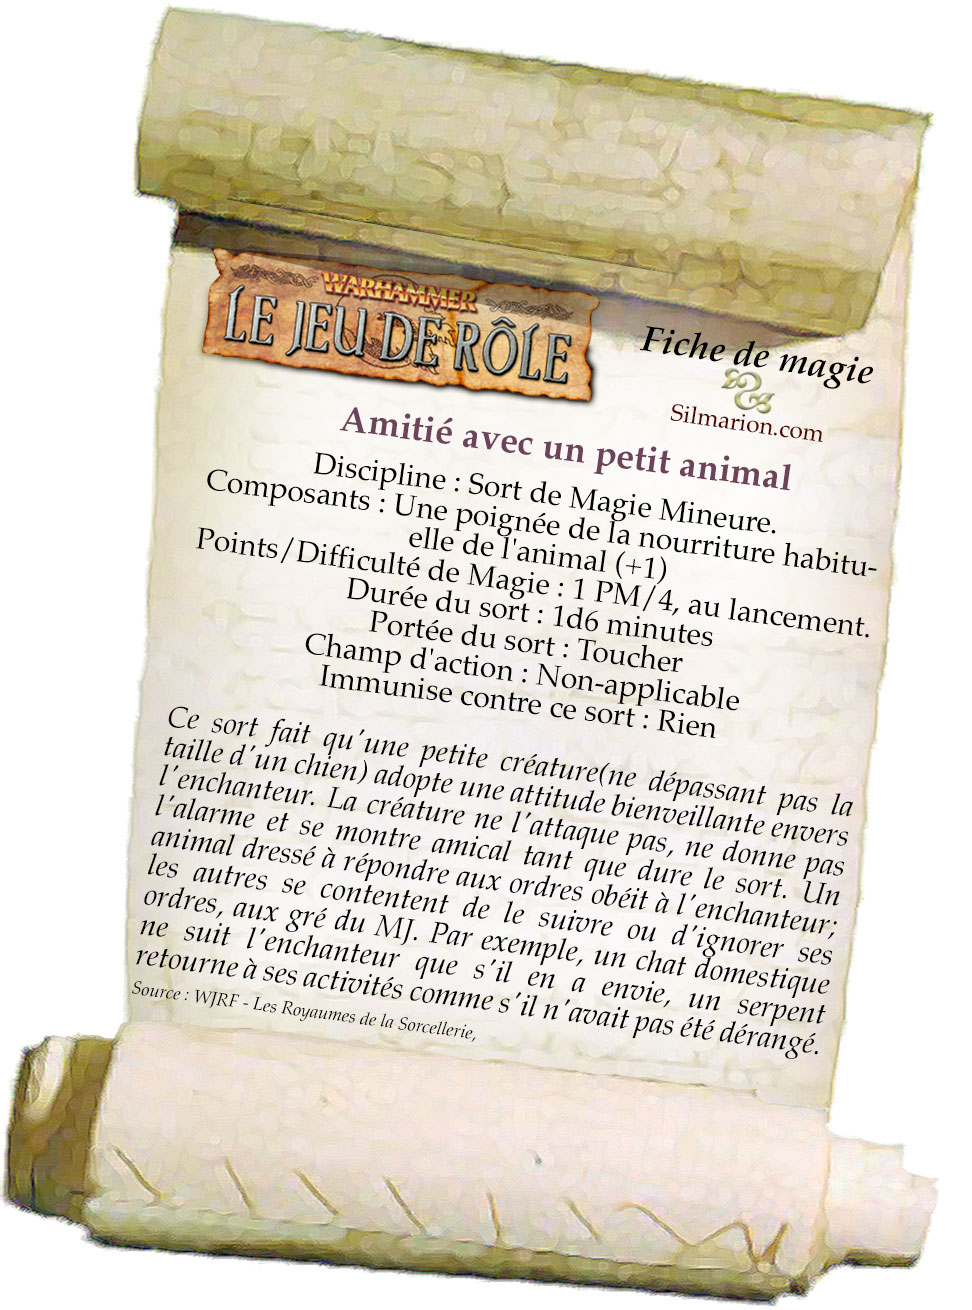 WARHAMMER
LE JEU DE RÔLE
Fiche de magie
Silmarion.com
Amitié avec un petit animal
Discipline : Sort de Magie Mineure.
Composants : Une poignée de la nourriture habitu-
elle de l'animal (+1)
Points/Difficulté de Magie : 1 PM/4, au lancement.
Durée du sort : 1d6 minutes
Portée du sort : Toucher
Champ d'action : Non-applicable
Immunise contre ce sort : Rien
Ce sort fait qu'une petite créature(ne dépassant pas la
taille d'un chien) adopte une attitude bienveillante envers
l'enchanteur. La créature ne l'attaque pas, ne donne pas
l'alarme et se montre amical tant que dure le sort. Un
animal dressé à répondre aux ordres obéit à l'enchanteur;
les autres se contentent de le suivre ou d'ignorer ses
ordres, aux gré du MJ. Par exemple, un chat domestique
ne suit l'enchanteur que s'il en a envie, un serpent
retourne à ses activités comme s'il n'avait pas été dérangé.
Source : WJRF - Les Royaumes de la Sorcellerie,